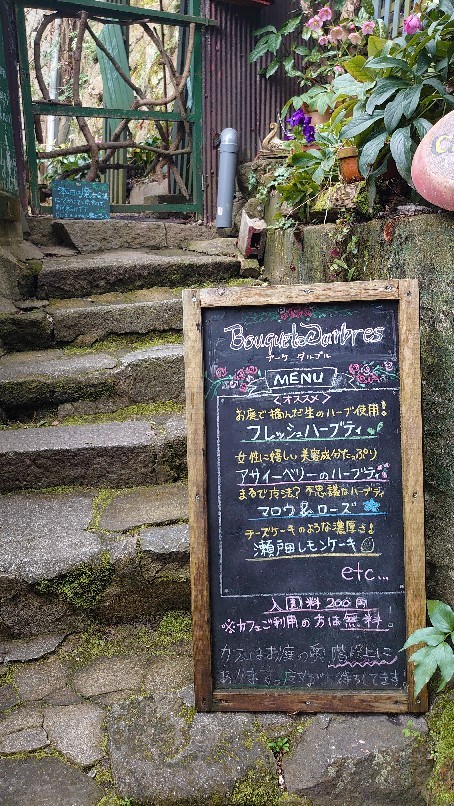 Bouquet d'arbres
ブーケ ダルブル
MENU
＜オススメ＞
お庭で摘んだ生のハーブ使用！
フレッシュハーブティ
女性に嬉しい 美容成分たっぷり
アサイーベリーのハーブティ
まるで魔法？ 不思議なハーブティ
マロウ&ローズ
チーズケーキのような濃厚さ！
瀬戸田レモンケーキ
etc...
入園料 200円
※カフェご利用の方は無料！
カフェはお庭の奥 階段上に